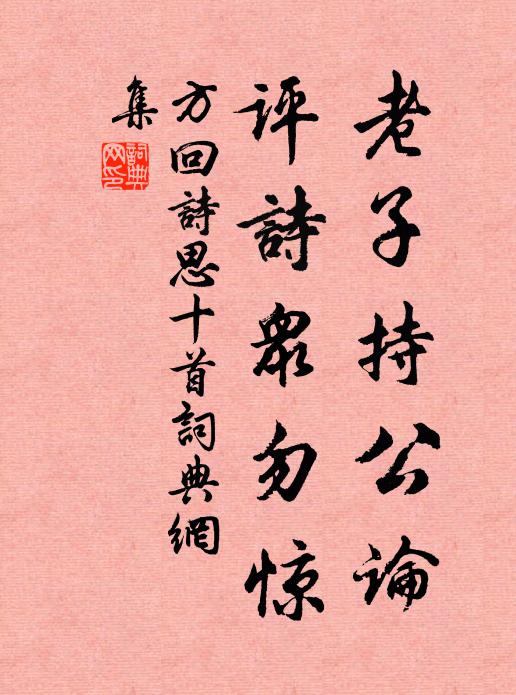 老子持公論
评詩眾勿惊
方回詩思十首詞典網
集
詞典
网印